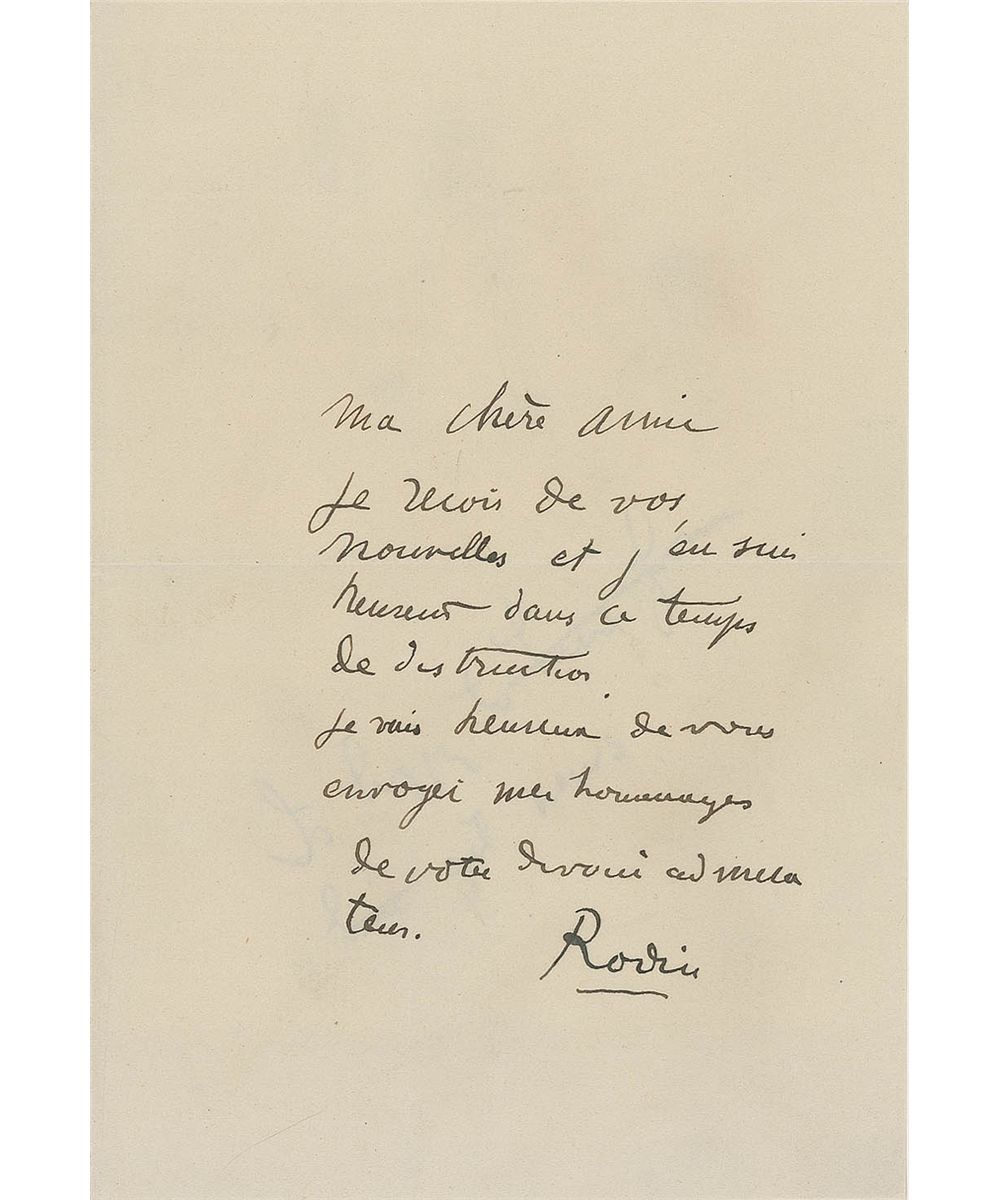 Ma chère amie
Je reçois de vos
nouvelles et j'en suis
heureux dans ce temps
de destruction.
je vais heureux de vous
envoyer mes hommages
de votre dévoué admira
teur.
Rodin